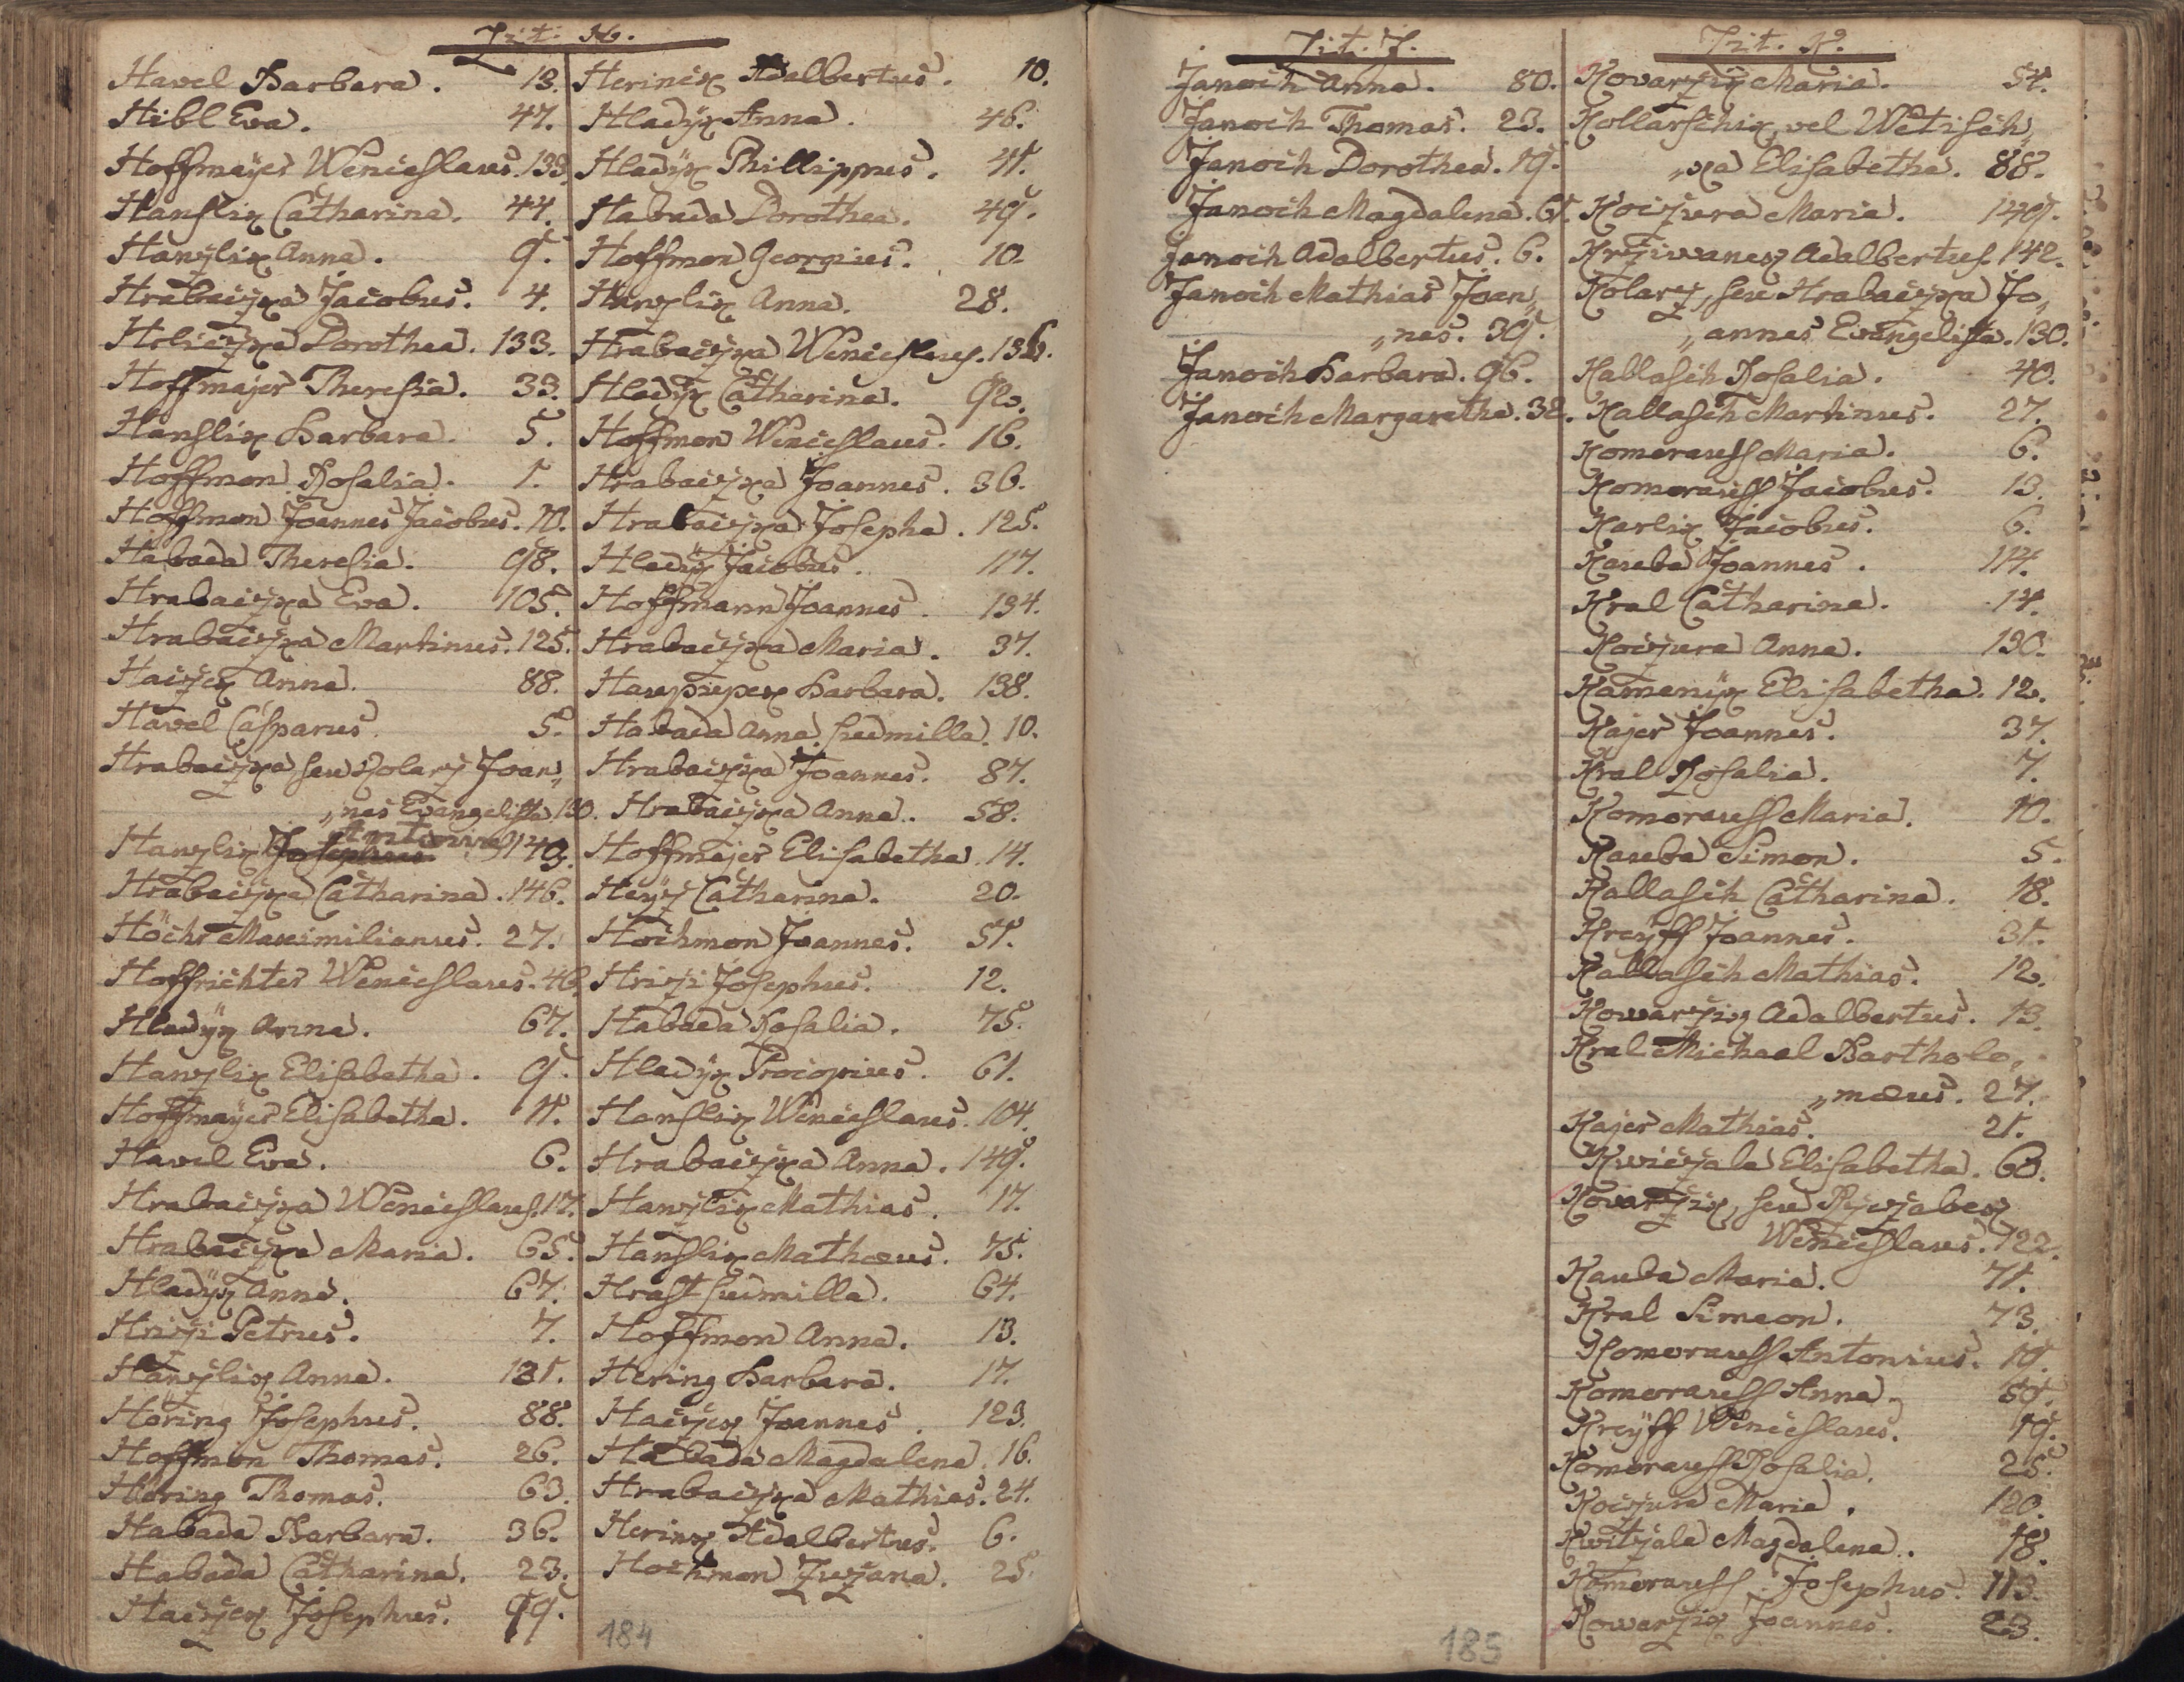 Lit. H.
Havel Barbara. 13.
Hibl Eva. 47.
Hoffmajer Wenceslaus. 133.
Hanslik Catharina. 44.
Hanzlik Anna. 9.
Hrabaczka Jacobus. 4.
Holiczka Dorothea. 133.
Hoffmajer Theresia. 33.
Hanslik Barbara. 5.
Hoffmon Rosalia. 1.
Hoffmon Joannes Jacobus. 10.
Habada Theresia. 98.
Hrabaczka Eva. 105.
Hrabaczka Martinus. 125.
Haczek Anna. 88.
Havel Casparus. 5.
Hrabaczka seu Kolarz Joan„
„nes Evangelista 130.
Antonius
Hanzlik Josephus 143.
Hrabaczka Catharina. 146.
Höchr Maximilianus. 27.
Hoffrichter Wenceslaus. 46.
Hladÿk Anna. 67.
Hanzlik Elisabetha. 9.
Hoffmayer Elisabetha. 11.
Havel Eva. 6.
Hrabaczka Wenceslaus. 17.
Hrabaczka Maria. 65.
Hladÿk Anna. 67.
Hrizi Petrus. 7.
Hanzlik Anna. 131.
Höring Josephus. 88.
Hoffmon Thomas. 26.
Höring Thomas. 63.
Habada Barbara. 36.
Habada Catharina. 23.
Haczek Josephus. 99.
Herinck Adalbertus. 10.
Hladÿk Anna. 46.
Hladÿk Phillippus. 41.
Habada Dorothea. 49.
Hoffmon Georgius. 10.
Hanzlik Anna. 28.
Hrabaczka Wenceslaus. 136.
Hladÿk Catharina. 92.
Hoffmon Wenceslaus. 16.
Hrabaczka Joannes. 36.
Hrabaczka Josepha. 125.
Hladÿk Jacobus. 117.
Hoffmann Joannes. 134.
Hrabaczka Maria. 37.
Barbara. 138.
Habada Anna Ludmilla. 10.
Hrabaczka Joannes. 87.
Hrabaczka Anna. 58.
Hoffmajer Elisabetha. 14.
Catharina. 20.
Hochmon Joannes. 51.
Hrizi Josephus. 12.
Habada Rosalia. 75.
Hladÿk Procopius. 61.
Hanslik Wenceslaus. 104.
Hrabaczka Anna. 149.
Hanzlik Mathias. 17.
Hanslik Mathæus. 75.
Hrast Ludmilla. 64.
Hoffmon Anna. 13.
Hering Barbara. 17.
Haczek Joannes. 123.
Habada Magdalena. 16.
Hrabaczka Mathias. 24.
Herink Adalbertus. 6.
Hochmon Zuzana. 25.
184
Lit. J.
Janoch Anna. 80.
Janoch Thomas. 23.
Janoch Dorothea. 19.
Janoch Magdalena. 61.
Janoch Adalbertus. 6.
Janoch Mathias Joan„
„nes. 39.
Janoch Barbara. 96.
Janoch Margaretha. 32.
185
Lit. K.
Kovarzik Maria. 54.
Kollarschik, vel Wetisch„
„ka Elisabetha. 88.
Koczura Maria. 149.
Krziwanek Adalbertus 142.
Kolarz, seu Hrabaczka Jo„
„annes Evangelista. 130.
Kallasch Rosalia. 40.
Kallasch Martinus. 27.
Komorauss Maria. 6.
Komorauss Jacobus. 13.
Karlik Jacobus. 6.
Kauba Joannes. 114.
Kral Catharina. 14.
Koczura Anna. 130.
Kamenÿk Elisabetha. 12.
Kajer Joannes. 37.
Kral Rosalia. 7.
Komorauss Maria. 10.
Kauba Simon. 5.
Kallasch Catharina. 18.
Kreÿff Joannes. 31.
Kallasch Mathias. 12.
Kowarzik Adalbertus. 13.
Kral Michael Bartholo„
„mæus. 27.
Kajer Mathias. 21.
Kwiczala Elisabetha. 60.
Kovarzik, seu
Wenceslaus. 122.
Kauba Maria. 71.
Kral Simeon. 73.
Komorauss Antonius. 19.
Komorauss Anna. 59.
Kreÿff Wenceslaus. 19.
Komorauss Rosalia. 25.
Koczura Maria. 120.
Kwitzala Magdalena. 18.
Komorauss Josephus. 113.
Kowarzik Joannes. 23.